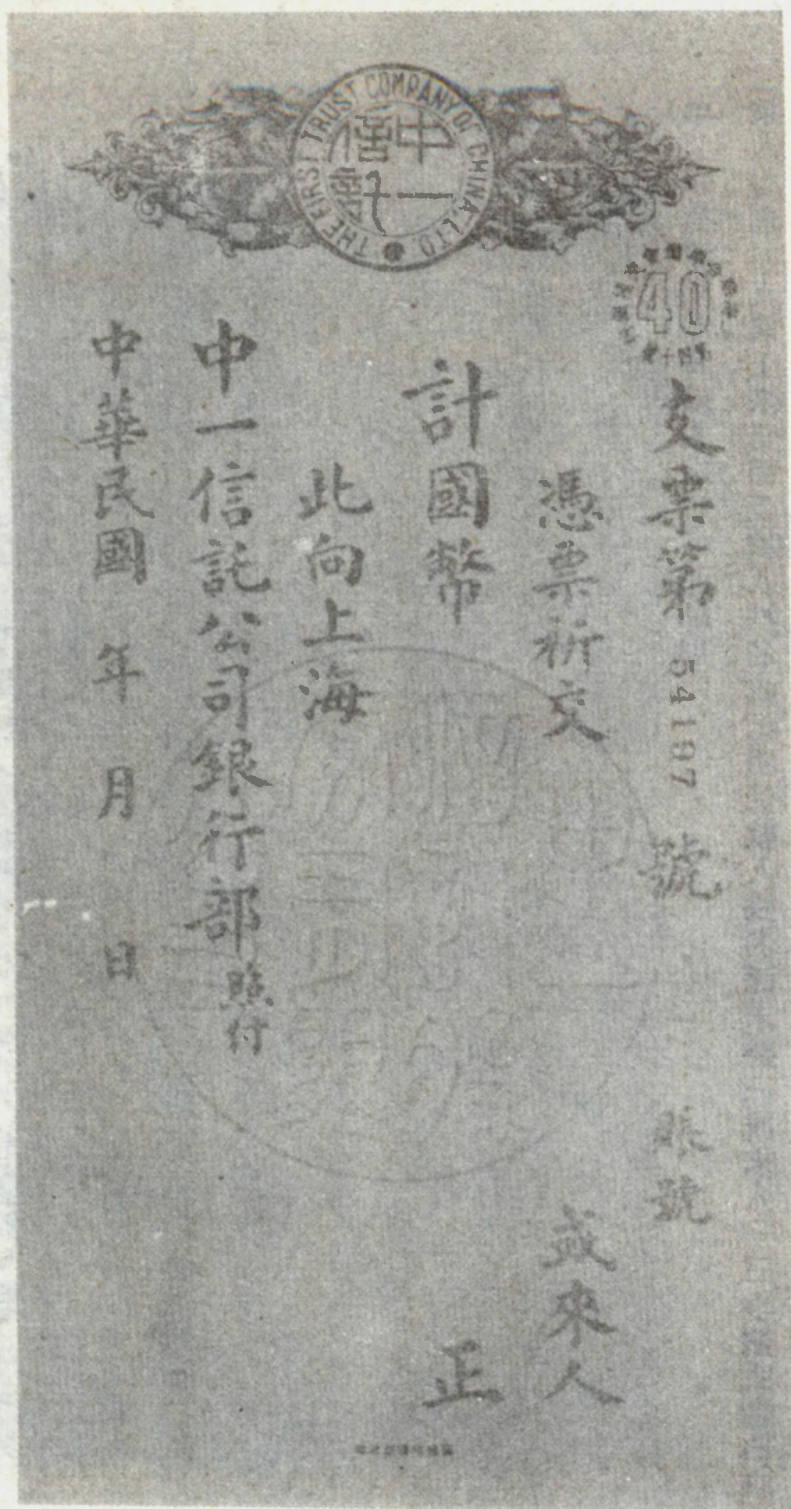 THE FIRST TRUST COMPANY OF CHINA, LTD.
中一信託
40
支票第 54197 號 賬號
憑票祈交 或來人
計國幣 正
此向上海
中一信託公司銀行部照付
中華民國 年 月 日